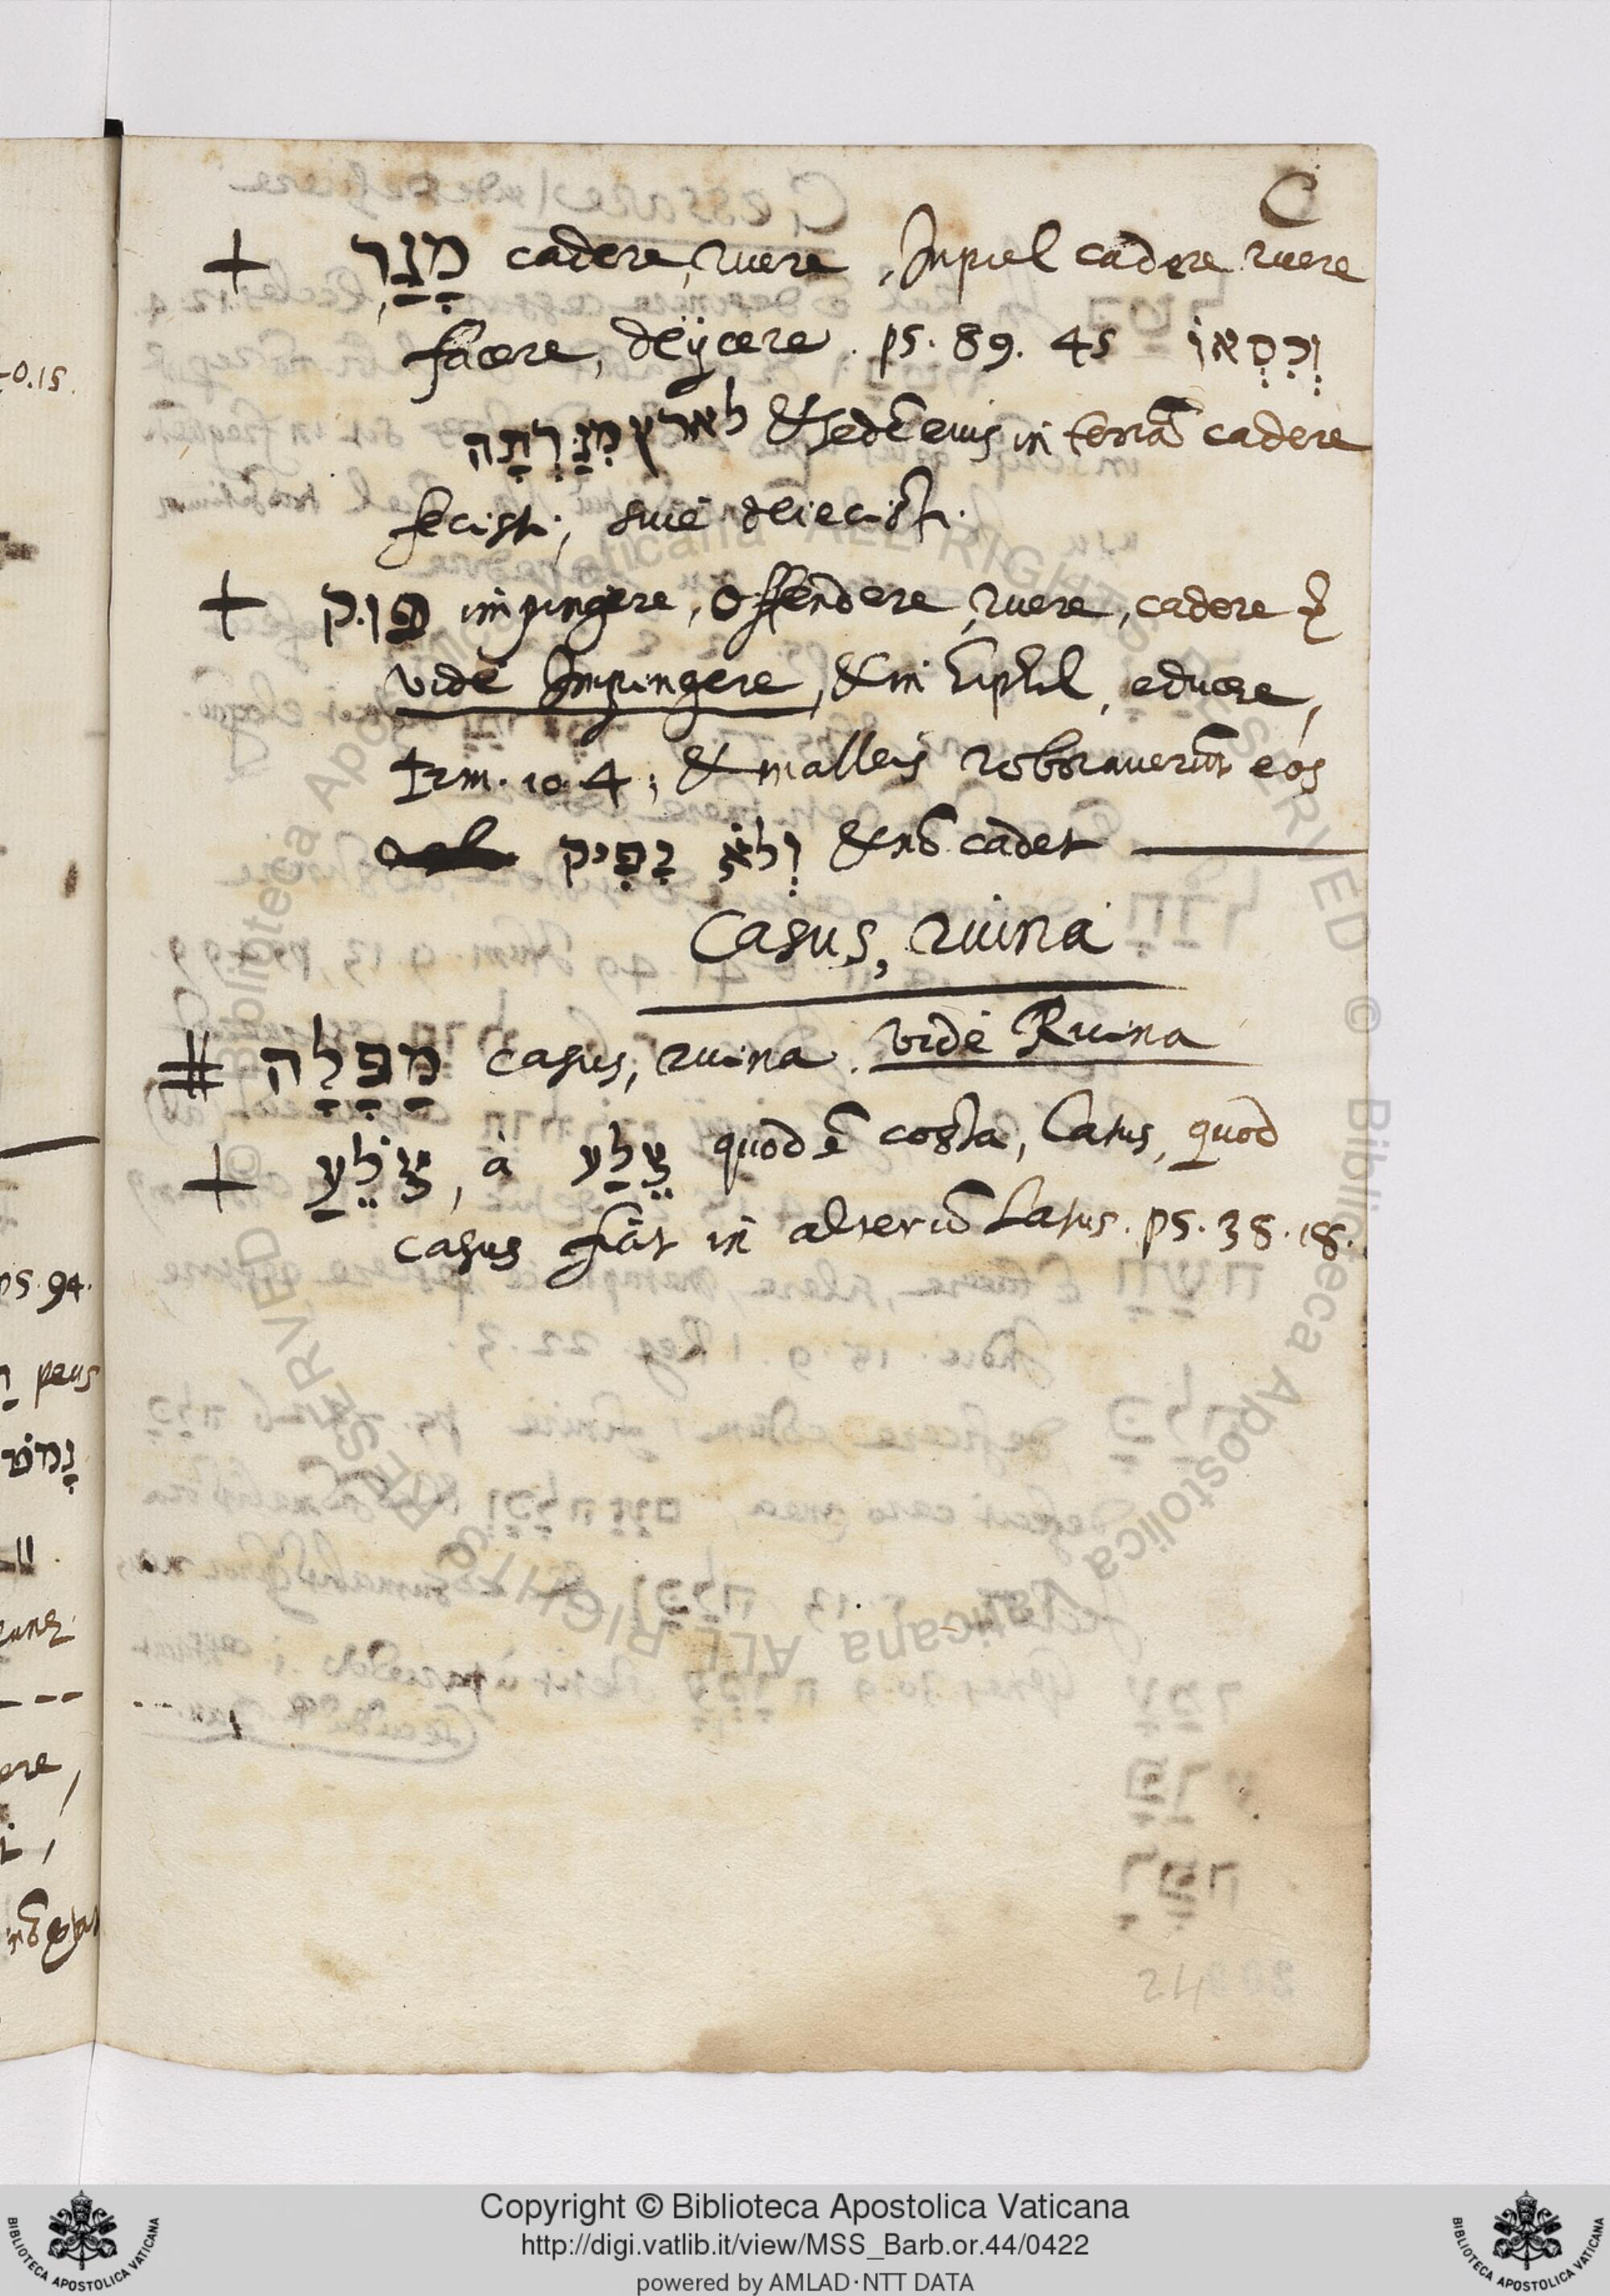 C
+ מָגַר cadere, ruere, In piel cadere ruere
facere, deÿcere. ps. 89. 45 וְכִסְאוֹ
לארץ מִגַּרְתָה & sedē eius in terrā cadere
fecisti, sivè deiecisti.
+ פּוּק impingere, offendere, ruere, cadere
vide Impingere, & in hiphil, educere,
Irm. 10. 4; & malleis roboraverūt eos
וְלֹא יָפִיק & nō cadet
Casus, ruina
# מַפָּלָה casus, ruina. vidè Ruina
+ צֹלֵעַ, à צֵלַע quod ē costa, latus, quod
casus fiat in alterū latus. ps. 38. 18.
0.15.
ps. 94.
Copyright © Biblioteca Apostolica Vaticana
http://digi.vatlib.it/view/MSS_Barb.or.44/0422
powered by AMLAD·NTT DATA
BIBLIOTECA APOSTOLICA VATICANA
BIBLIOTECA APOSTOLICA VATICANA